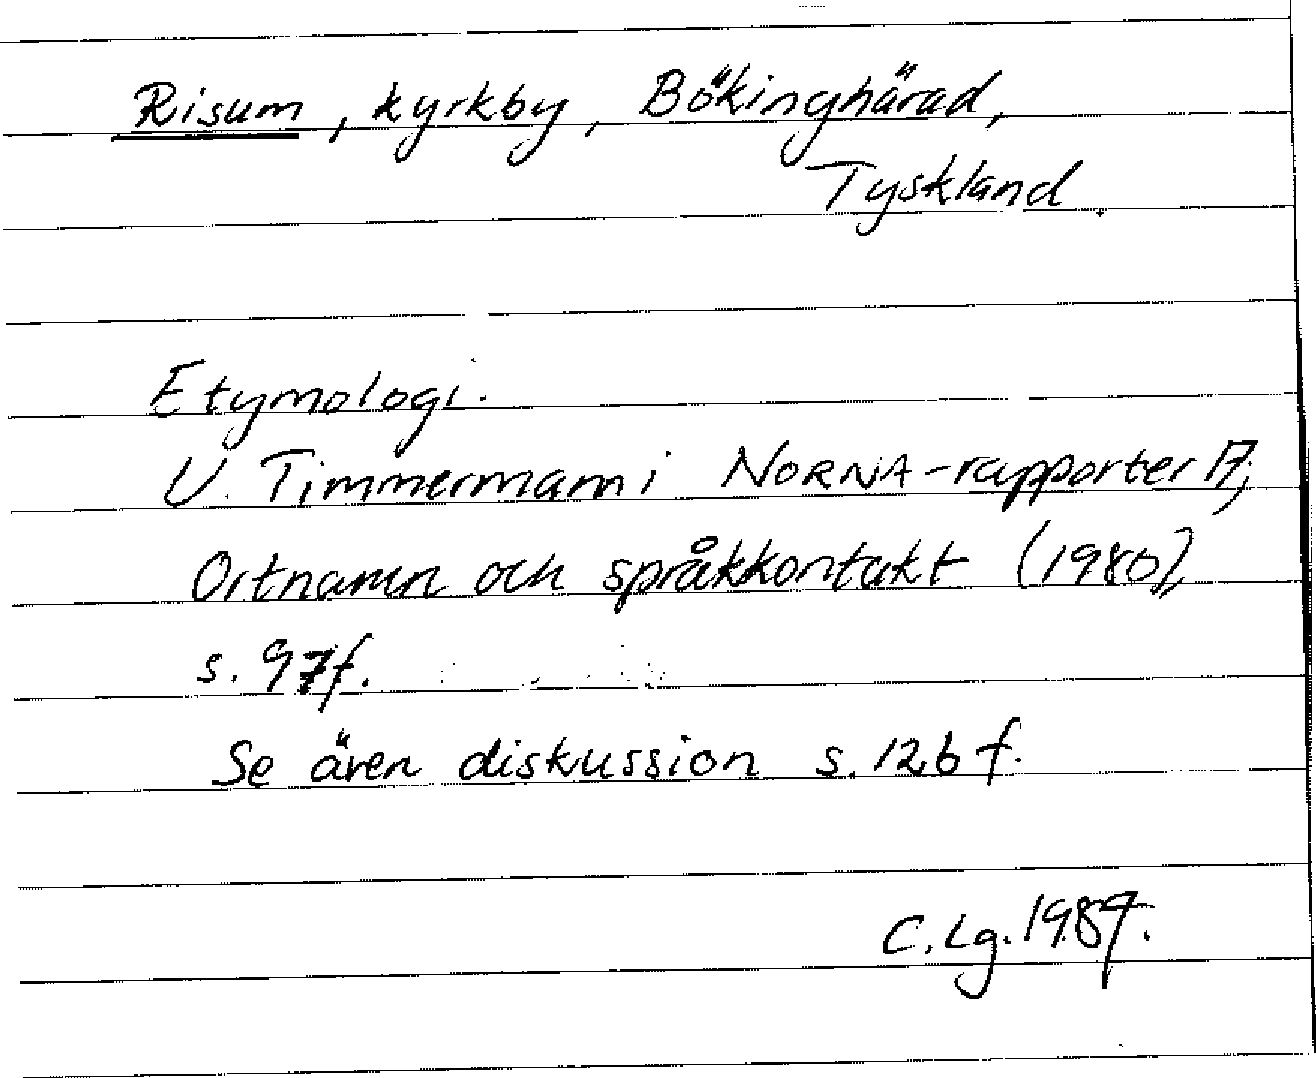 Risum, kyrkby, Bökinghärad,
Tyskland.
Etymologi.
U. Timmermann i NORNA-rapporter 17;
Ortnamn och språkkontakt (1980),
s. 97f.
Se även diskussion s. 126 f.
C. Lg. 1989.